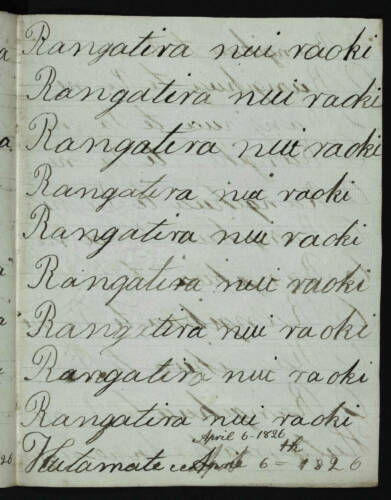 Rangatira nui raoki
Rangatira nui raoki
Rangatira nui raoki
Rangatira nui raoki
Rangatira nui raoki
Rangatira nui raoki
Rangatira nui raoki
Rangatira nui raoki
Rangatira nui raoki
April 6-1826
April 6th = 1826